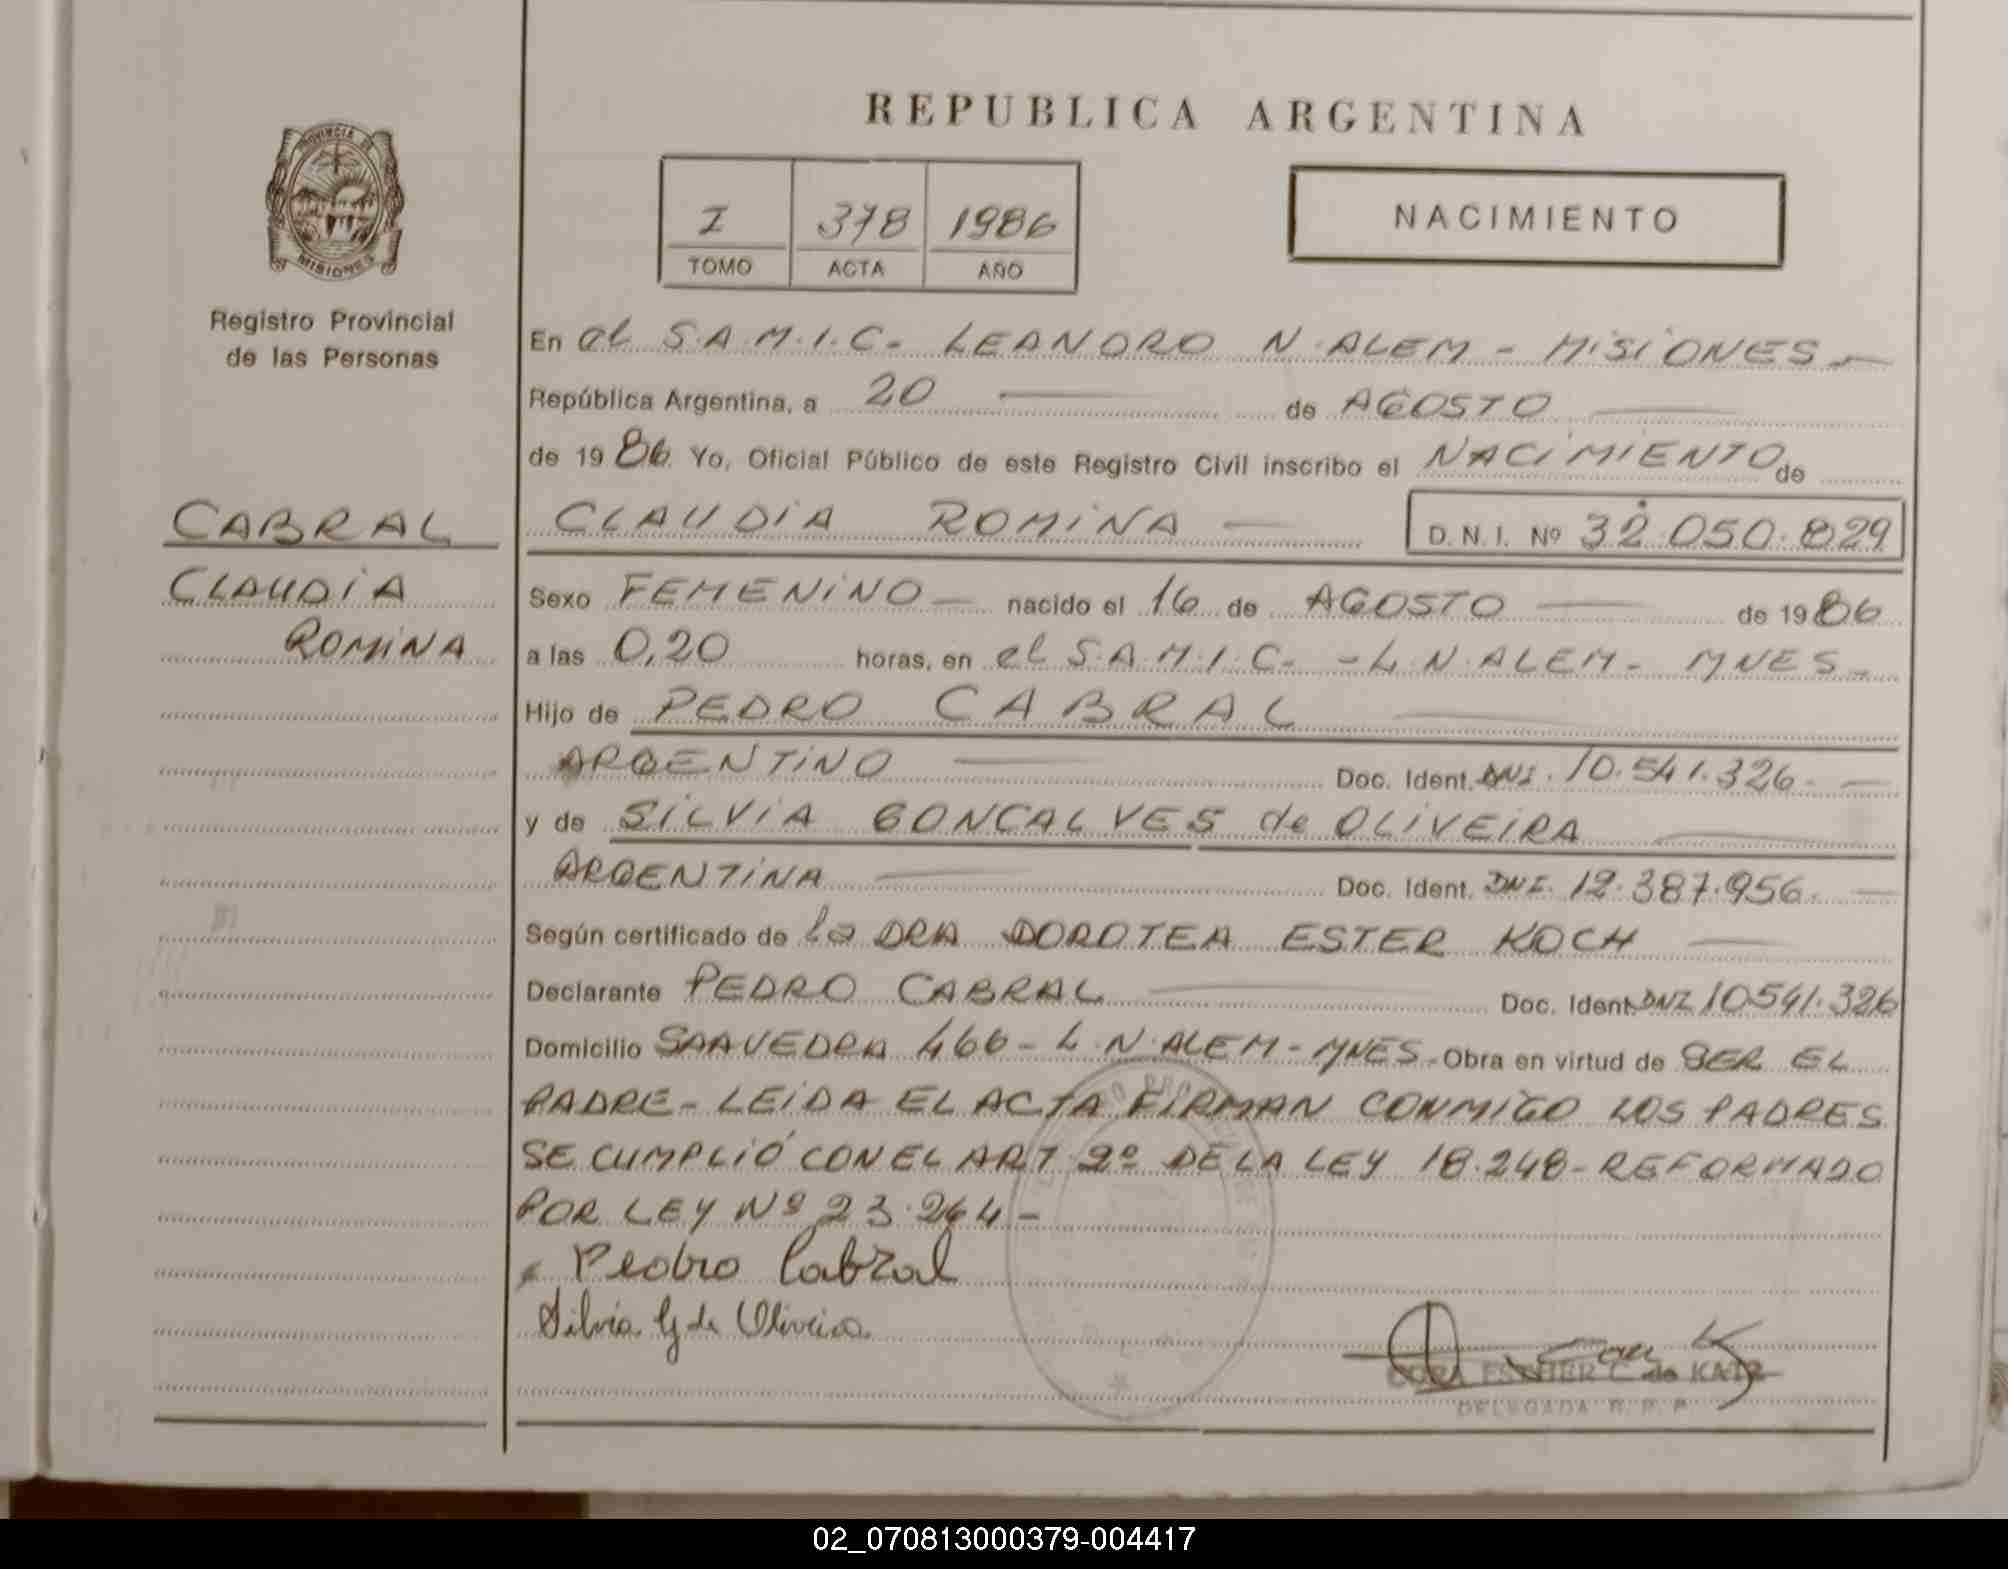 REPUBLICA ARGENTINA
PROVINCIA DE
MISIONES
Registro Provincial
de las Personas
I 378 1986
TOMO ACTA AÑO
NACIMIENTO
En el S.A.M.I.C- LEANDRO N. ALEM - MISIONES-
República Argentina, a 20 de AGOSTO
de 1986. Yo, Oficial Público de este Registro Civil inscribo el NACIMIENTO de
CABRAL
CLAUDIA
ROMINA
CLAUDIA ROMINA D.N.I. Nº 32.050.829
Sexo FEMENINO nacido el 16 de AGOSTO de 1986
a las 0,20 horas, en el S.A.M.I.C- -L.N.ALEM- MNES-
Hijo de PEDRO CABRAL
ARGENTINO Doc. Ident. DNI. 10.541.326-
y de SILVIA GONCALVES de OLIVEIRA
ARGENTINA Doc. Ident. DNI. 12.387.956.
Según certificado de la DRA DOROTEA ESTER KOCH
Declarante PEDRO CABRAL Doc. Ident. DNI 10541.326
Domicilio SAAVEDRA 466- L.N.ALEM-MNES- Obra en virtud de SER EL
PADRE- LEIDA EL ACTA FIRMAN CONMIGO LOS PADRES
SE CUMPLIÓ CON EL ART 2º DE LA LEY 18.248-REFORMADO
POR LEY Nº 23.264-
Pedro Cabral
Silvia G de Oliveira
ESTHER C de KATZ
DELEGADA R. P. P.
02_070813000379-004417